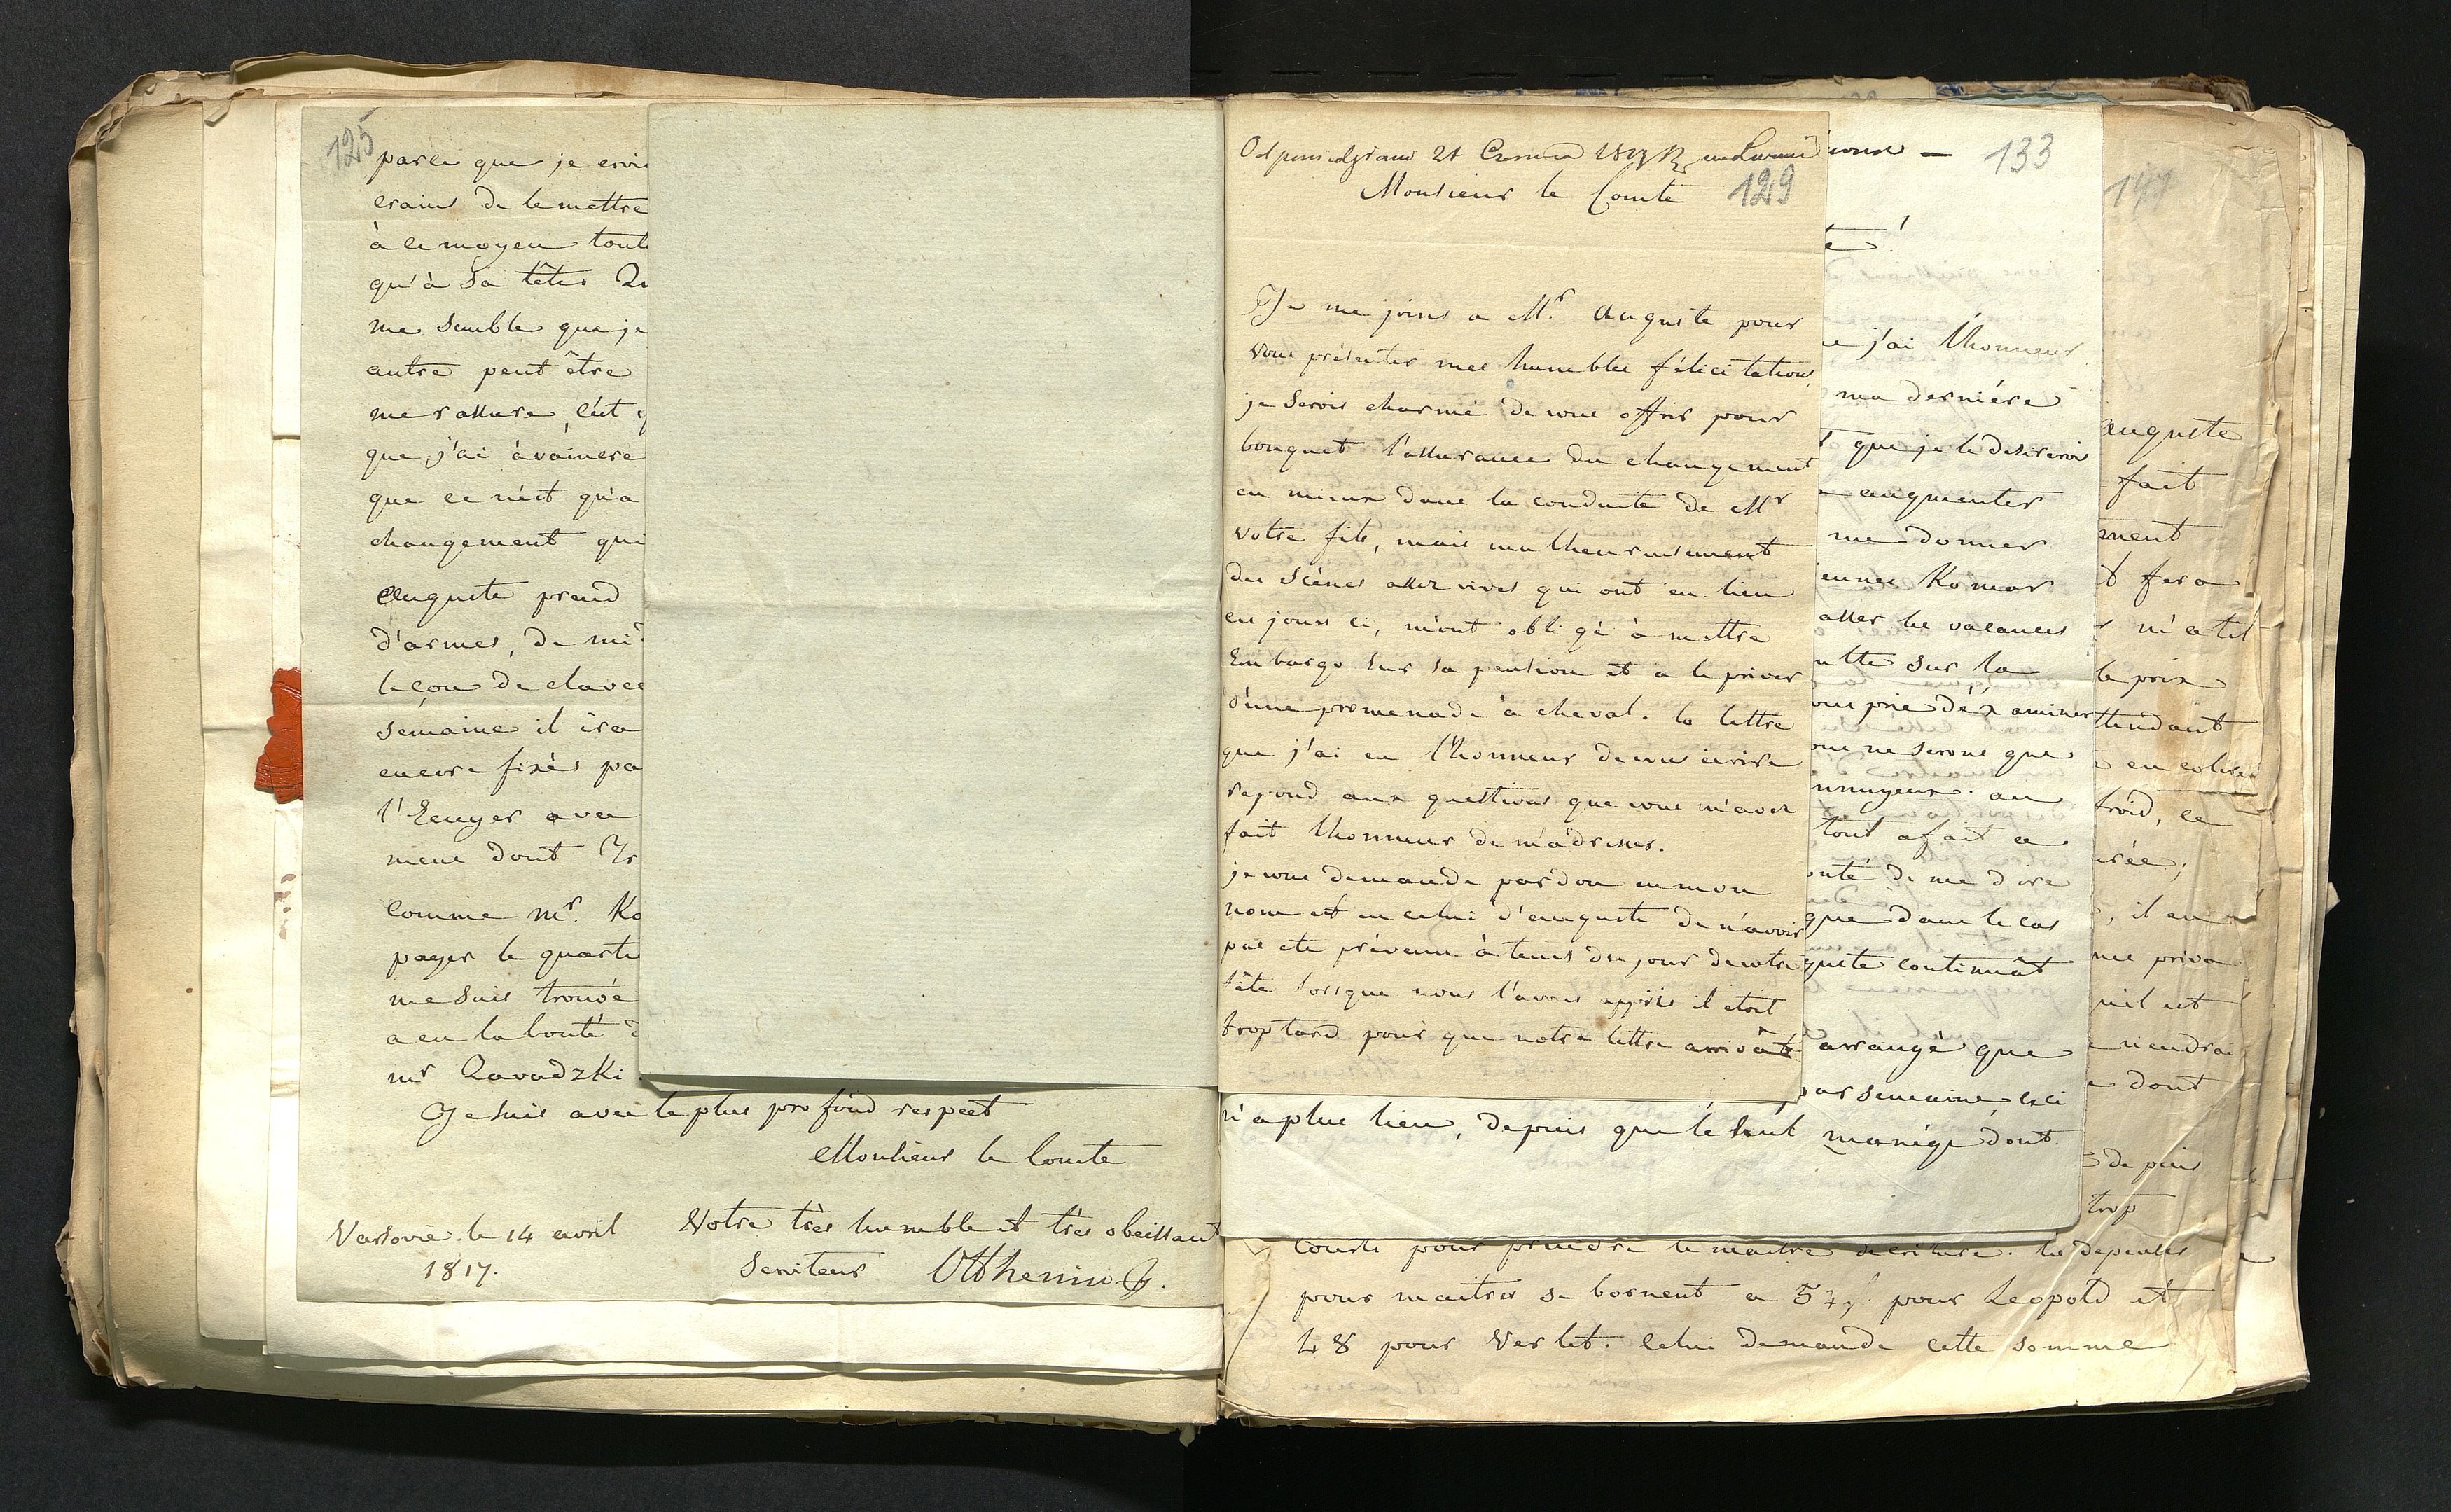 125
parce que je croi
crains de le mettre
à ce moyen tout
qu'à sa tête. Qu
me semble que je
autre peut être
me rassure, c'est q
que j'ai à vaincre
que ce n'est qu'a
changement qui
Auguste prend
d'armes, de
leçon de clavec
semaine il ira
encore fixés pa
l'Ecuyer avec
mene dont Je
Comme mr. Ko
payer le quartie
me suis trouvé
a eu la bonté d
mr Zavadzki
Je suis avec le plus profond respect
Monsieur le Comte
Votre très humble et très obeissant
Serviteur Otthenin
Varsovie le 14 avril
1817.
Odpowiedziano 21 Czerwca
Monsieur le Comte 129
Je me joins a Mr. Auguste pour
vous présenter mes humbles félicitations,
je serois charmé de vous offrir pour
bouquet l'assurance du changement
en mieux dans la conduite de Mr
votre fils, mais malheureusement
des scènes assez vives qui ont eu lieu
ces jours ci, m'ont obligé à mettre
Embargo sur sa pension et a le priver
d'une promenade à cheval. la lettre
que j'ai eu l'honneur de vous écrire
repond aux questions que vous m'avez
fait l'honneur de m'adresser.
je vous demande pardon en mon
nom et en celui d'auguste de n'avoir
pas été prévenu à tems du jour de votre
fête lorsque nous l'avons appris il etoit
trop tard pour que notre lettre arrivât
133
e j'ai l'honneur
ma derniére
que je le desirerois
augmenter
me donner
eunes Komar
asser les vacances
ulte sur la
ous prie d'éxaminer
ous ne serons que
nnuyeux. au
tout afait a
onté de me dire
que dans le cas
guste continuât
arrangé que
par semaine, ceci
n'a plus lieu, depuis que le seul manége dont
auguste
fait
ment
t fera
le prix
ttendant
froid, ce
urée;
, il en
me priva
u'il est
viendrai
dont
depuis
trop
courte pour prendre le maitre d'ecriture. les depenses
pour maitres se bornent a 54 # pour Leopold et
48 pour Verlet. Celui demande cette somme